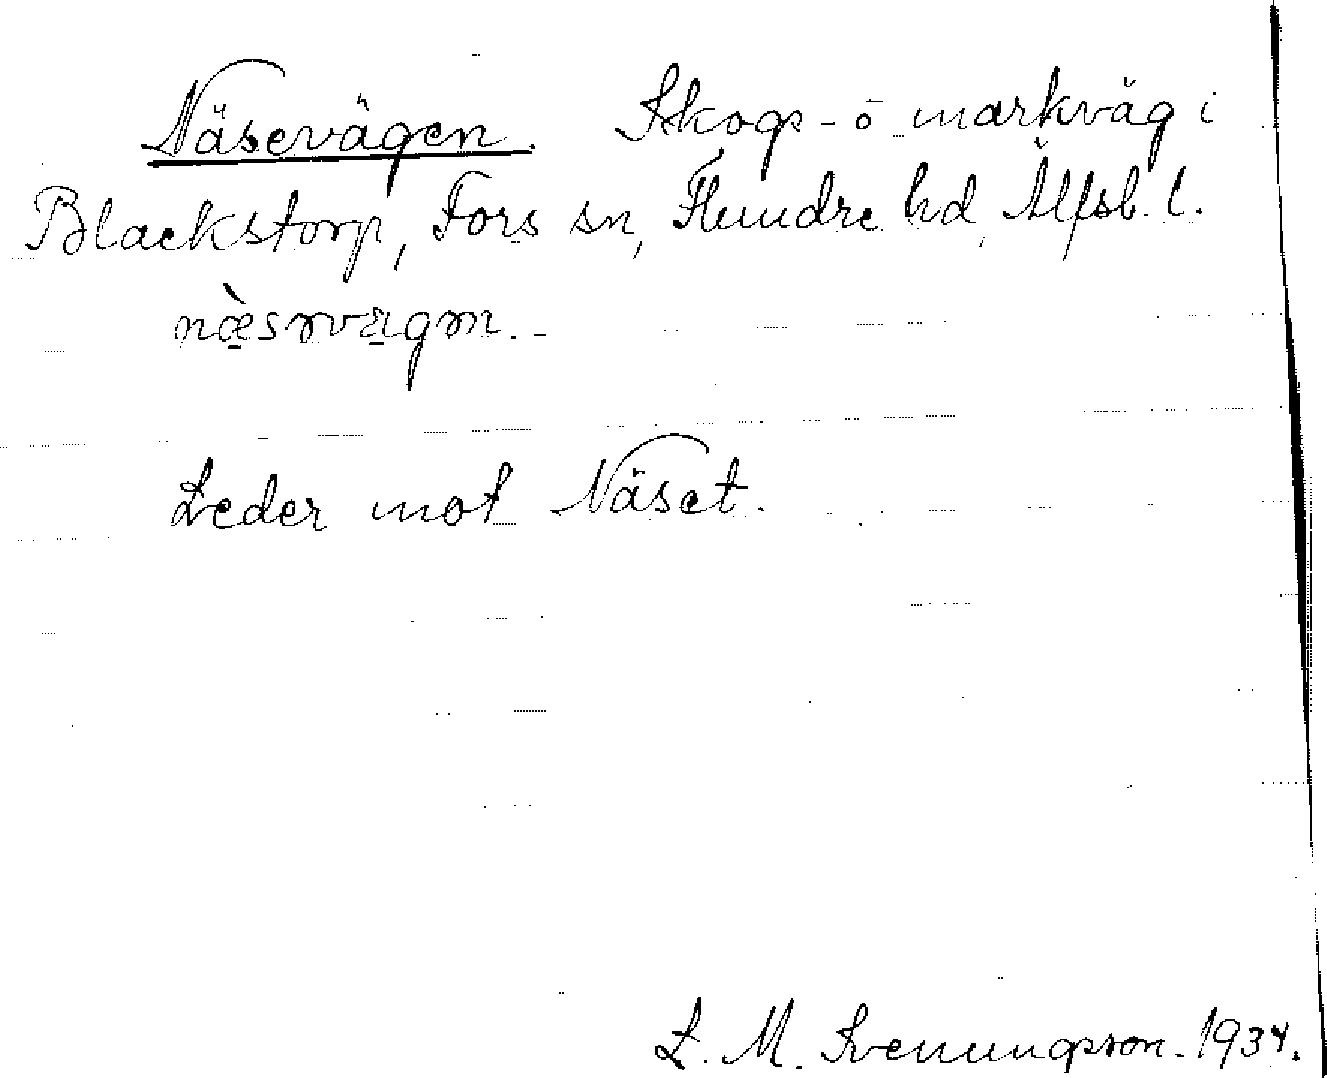 Näsevägen. Skogs- o markväg i
Blackstorp, Fors sn, Flundre hd, Älfsb. l.
Leder mot Näset.
L. M. Svenungsson. 1934.